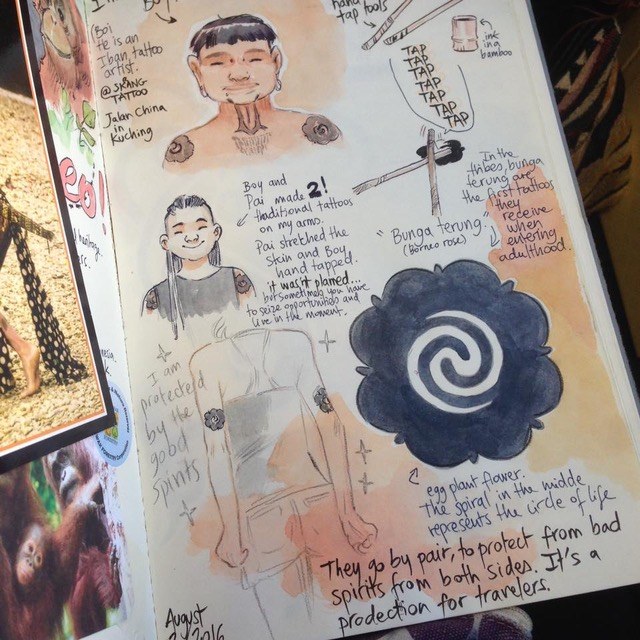 Boy
(Boi
He is an
Iban tattoo
artist.
@SKRANG
TATTOO
Jalan China
in
Kuching
hand
tap tools
ink
in a
bamboo
TAP
TAP
TAP
TAP
TAP
TAP
TAP
In the
tribes, bunga
terung are
the first tattoos
they
receive
when
entering
adulthood.
"Bunga terung"
(Borneo rose)
Boy and
Pai made 2!
traditional tattoos
on my arms.
Pai stretched the
skin and Boy
hand tapped.
it wasn't planed...
but sometimes you have
to seize opportunities and
live in the moment.
I am
protected
by the
good
spirits
egg plant flower.
the spiral in the middle
represents the circle of life
They go by pair, to protect from bad
spirits from both sides. It's a
prodection for travelers.
August
2016
eo!